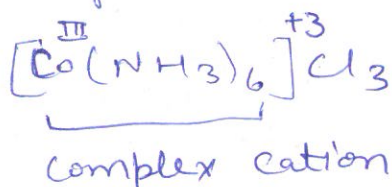 [Co^III(NH3)6]^+3 Cl3
complex cation